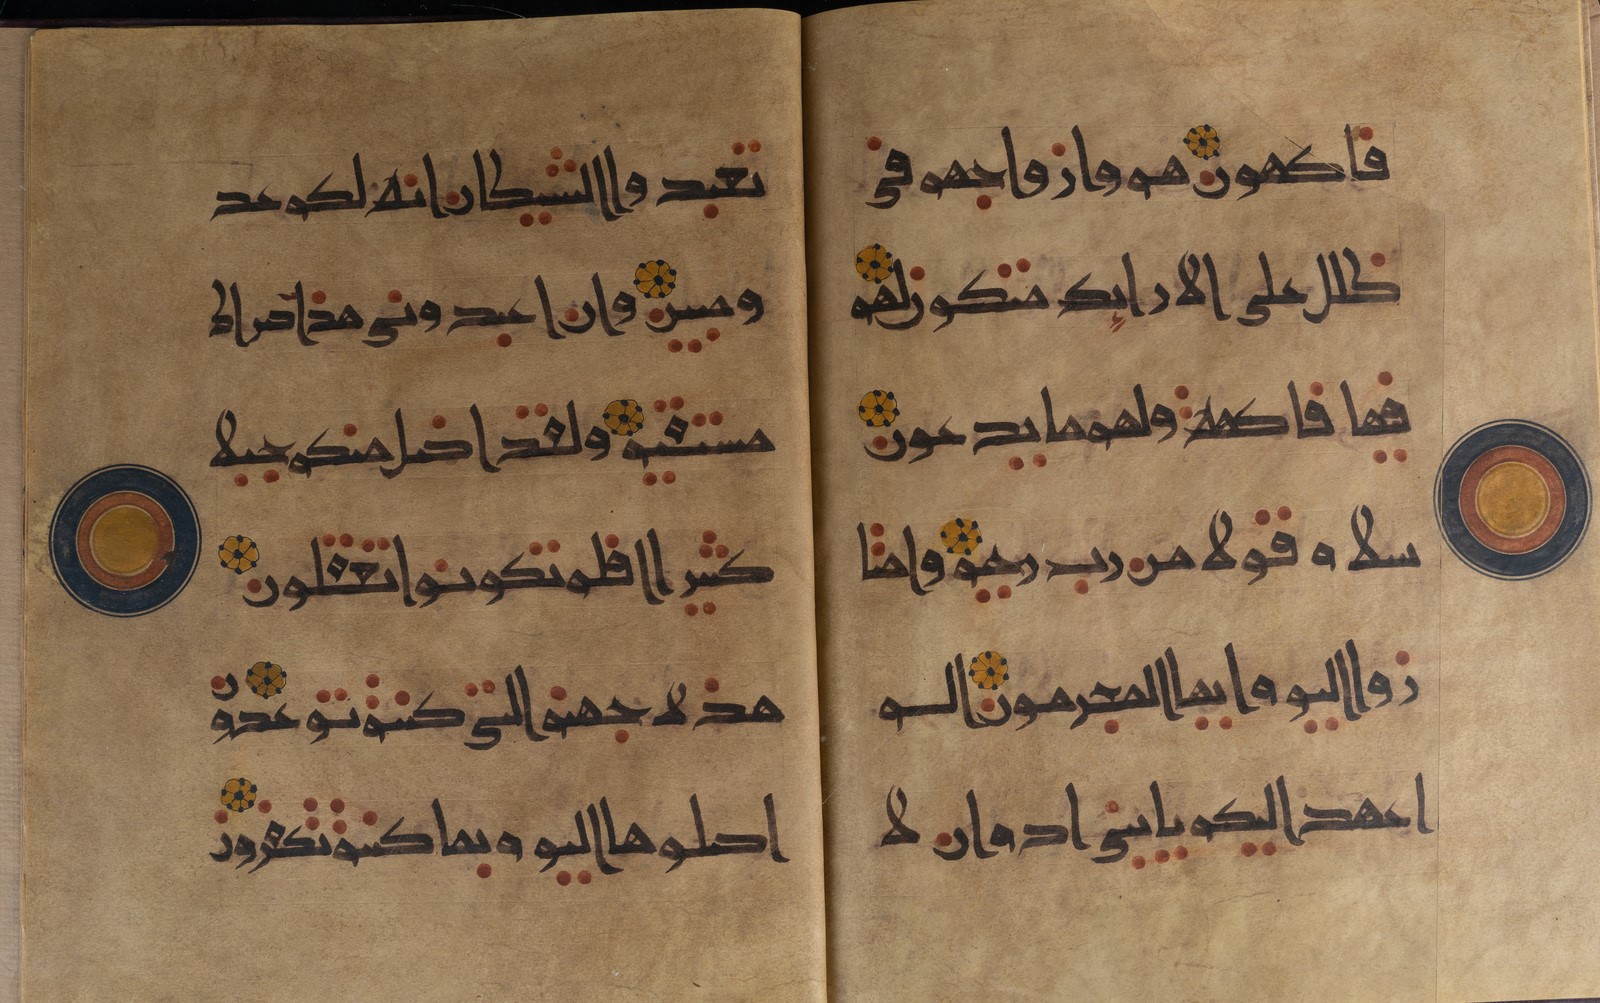 فاكهون هم وازواجهم في
ظلل على الارايك متكون لهم
فيها فاكهة ولهم ما يدعون
سلام قولا من رب رحيم وامتا
زوا اليوم ايها المجرمون الم
اعهد اليكم يابني ادم ان لا
تعبدوا الشيطان انه لكم عد
و مبين وان اعبدوني هذا صراط
مستقيم ولقد اضل منكم جبلا
كثيرا افلم تكونوا تعقلون
هذه جهنم التي كنتم توعدون
اصلوها اليوم بما كنتم تكفرون